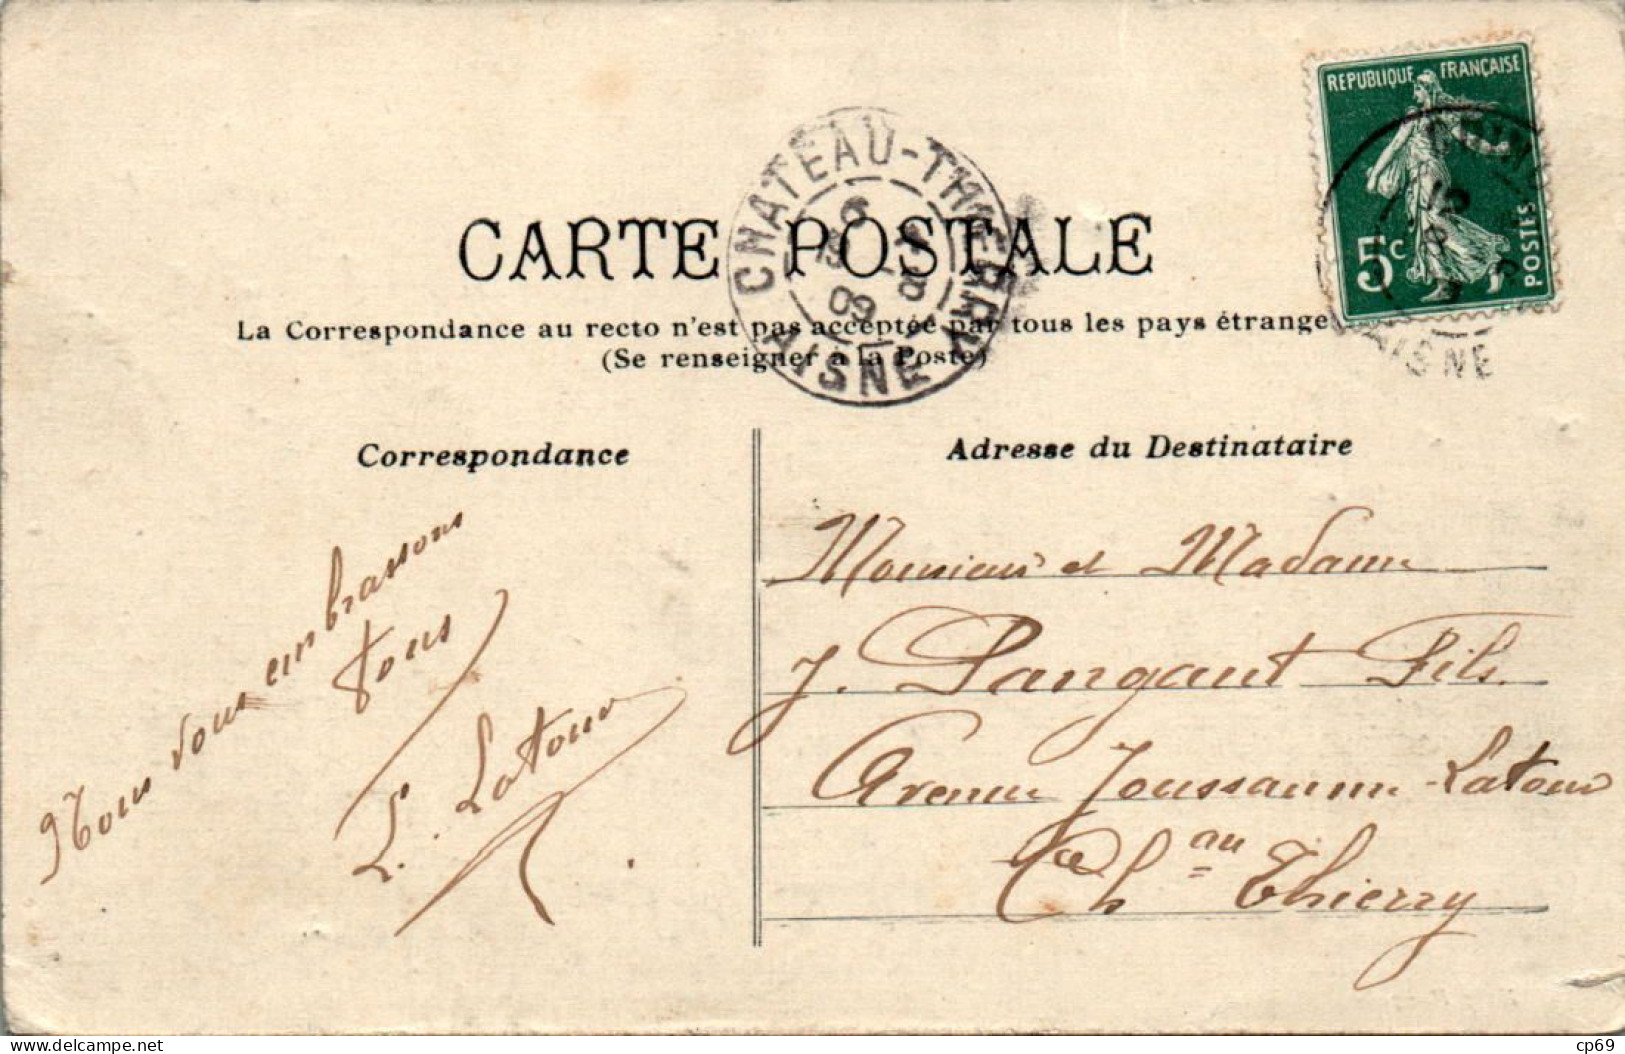 REPUBLIQUE FRANÇAISE
5c POSTES
CHATEAU-THIERRY
6
15
09
AISNE
12
AISNE
CARTE POSTALE
La Correspondance au recto n'est pas acceptée par tous les pays étrange
(Se renseigner à la Poste)
Correspondance
Nous vous embrassons
tous
L. Latour
Adresse du Destinataire
Monsieur et Madame
J. Pangaut Fils.
Avenue Joussaume-Latour
Chau Thierry
cp69